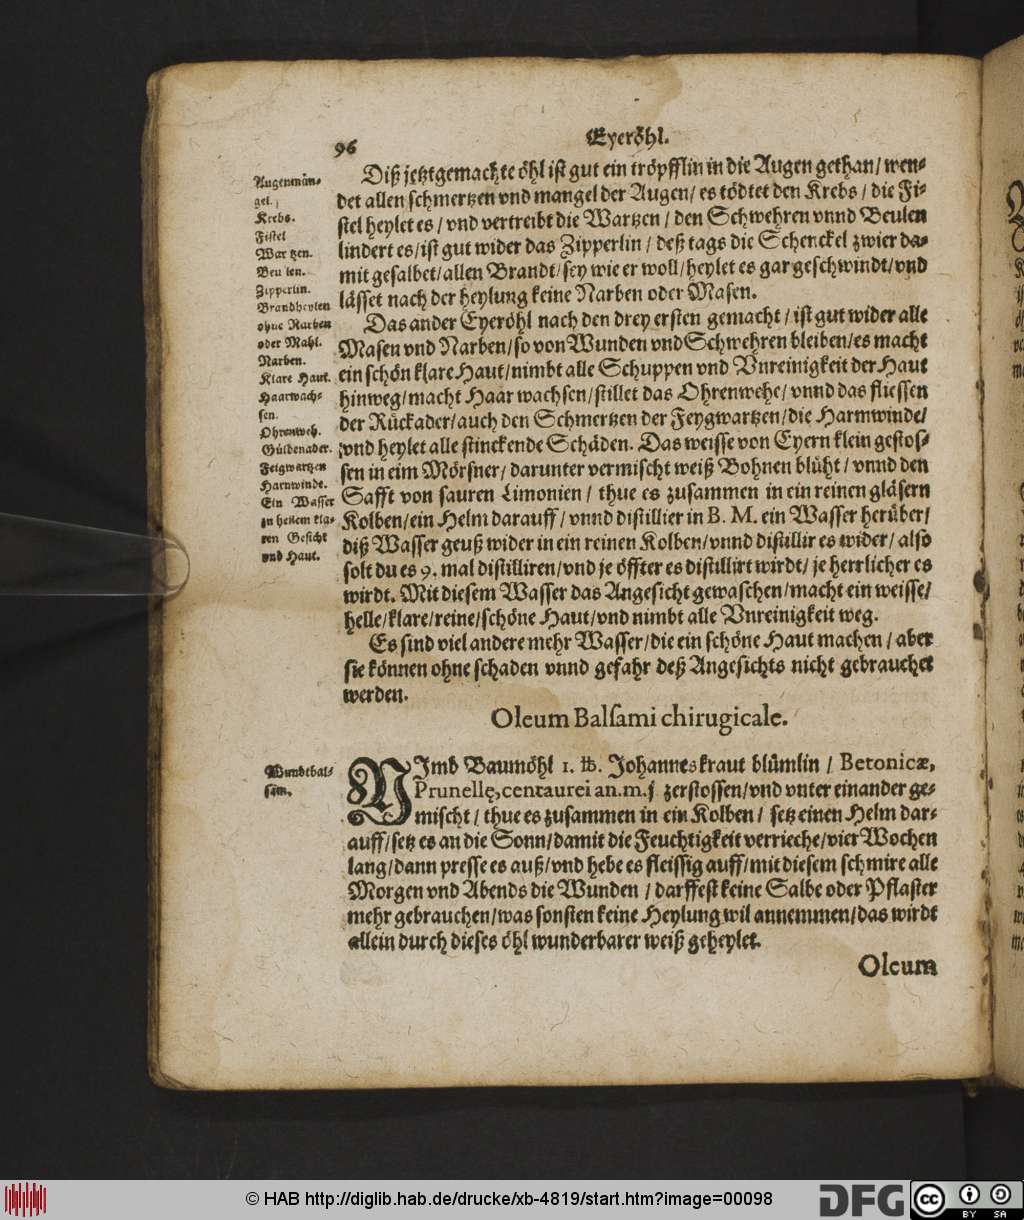 96
Eyeröhl.
Diß jetztgemachte öhl ist gut ein tröpfflin in die Augen gethan/ wen-
det allen schmertzen vnd mangel der Augen/ es tödtet den Krebs/ die Fi-
stel heylet es/ vnd vertreibt die Wartzen/ den Schwehren vnnd Beulen
lindert es/ ist gut wider das Zipperlin/ deß tags die Schenckel zwier da-
mit gesalbet/ allen Brandt/ sey wie er woll/ heylet es gar geschwindt/ vnd
lässet nach der heylung keine Narben oder Masen.
Das ander Eyeröhl nach den drey ersten gemacht/ ist gut wider alle
Masen vnd Narben/ so von Wunden vnd Schwehren bleiben/ es macht
ein schön klare Haut/ nimbt alle Schuppen vnd Vnreinigkeit der Haut
hinweg/ macht Haar wachsen/ stillet das Ohrenwehe/ vnnd das fliessen
der Rückader/ auch den Schmertzen der Feygwartzen/ die Harmwinde/
vnd heylet alle stinckende Schäden. Das weisse von Eyern klein gestos-
sen in eim Mörsner/ darunter vermischt weiß Bohnen blüht/ vnnd den
Safft von sauren Limonien/ thue es zusammen in ein reinen gläsern
Kolben/ ein Helm darauff/ vnnd distillier in B. M. ein Wasser herüber/
diß Wasser geuß wider in ein reinen Kolben/ vnnd distillir es wider/ also
solt du es 9. mal distilliren/ vnd je öffter es distillirt wirdt/ je herrlicher es
wirdt. Mit diesem Wasser das Angesicht gewaschen/ macht ein weisse/
helle/ klare/ reine/ schöne Haut/ vnd nimbt alle Vnreinigkeit weg.
Es sind viel andere mehr Wasser/ die ein schöne Haut machen/ aber
sie können ohne schaden vnnd gefahr deß Angesichts nicht gebrauchet
werden.
Augenmän-
gel.
Krebs.
Fistel
Wartzen.
Beulen.
Zipperlin.
Brandheylen
ohne Narben
oder Mahl.
Narben.
Klare Haut.
Haarwach-
sen.
Ohrenweh.
Güldenader.
Feigwartzen
Harnwinde.
Ein Wasser
zu hellem kla-
ren Gesicht
vnd Haut.
Oleum Balsami chirugicale.
Wundtbal-
sam.
NImb Baumöhl 1. ℔. Johanneskraut blümlin/ Betonicæ,
Prunellę, centaurei an. m. j zerstossen/ vnd vnter einander ge-
mischt/ thue es zusammen in ein Kolben/ setz einen Helm dar-
auff/ setz es an die Sonn/ damit die Feuchtigkeit verrieche/ vier Wochen
lang/ dann presse es auß/ vnd hebe es fleissig auff/ mit diesem schmire alle
Morgen vnd Abends die Wunden/ darffest keine Salbe oder Pflaster
mehr gebrauchen/ was sonsten keine Heylung wil annemmen/ das wirdt
allein durch dieses öhl wunderbarer weiß geheylet.
Oleum
© HAB http://diglib.hab.de/drucke/xb-4819/start.htm?image=00098
DFG
cc BY SA